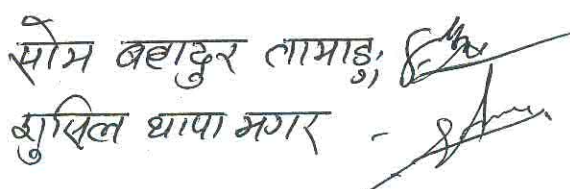 सोम बहादुर तामाङ,
शुसिल थापा मगर -